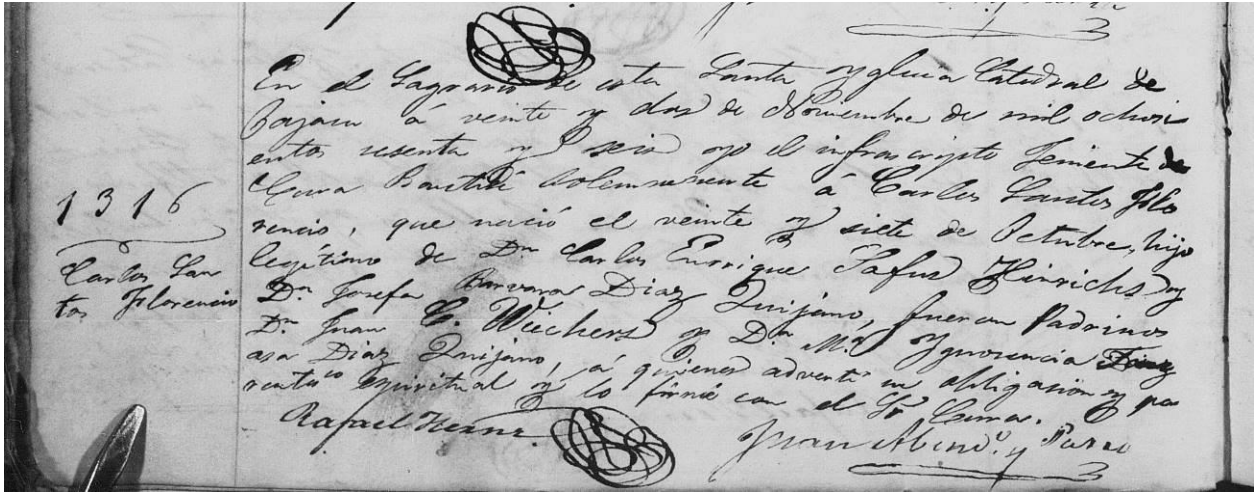 1316
Carlos San
tos Florencio
En el Sagrario de esta Santa Yglecia Catedral de
á veinte y dos de Noviembre de mil ochosi
entos sesenta y seis yo el infrascripto Teniente de
Cura Bautisé solemnemente á Carlos Santos Flo
rencio, que nació el veinte y siete de Octubre, hijo
legítimo de Dn Carlos Enrique Hinrichs y
Da Josefa Barvara Diaz Quijano, fueron Padrinos
Dn Juan C. Wiechers y Da Ma Ygnocencia
asa Diaz Quijano, á quienes advertí su obligasion y pa
rentco espiritual y lo firmé con el Sr Cura.
Rafael Hernz.
Juan y